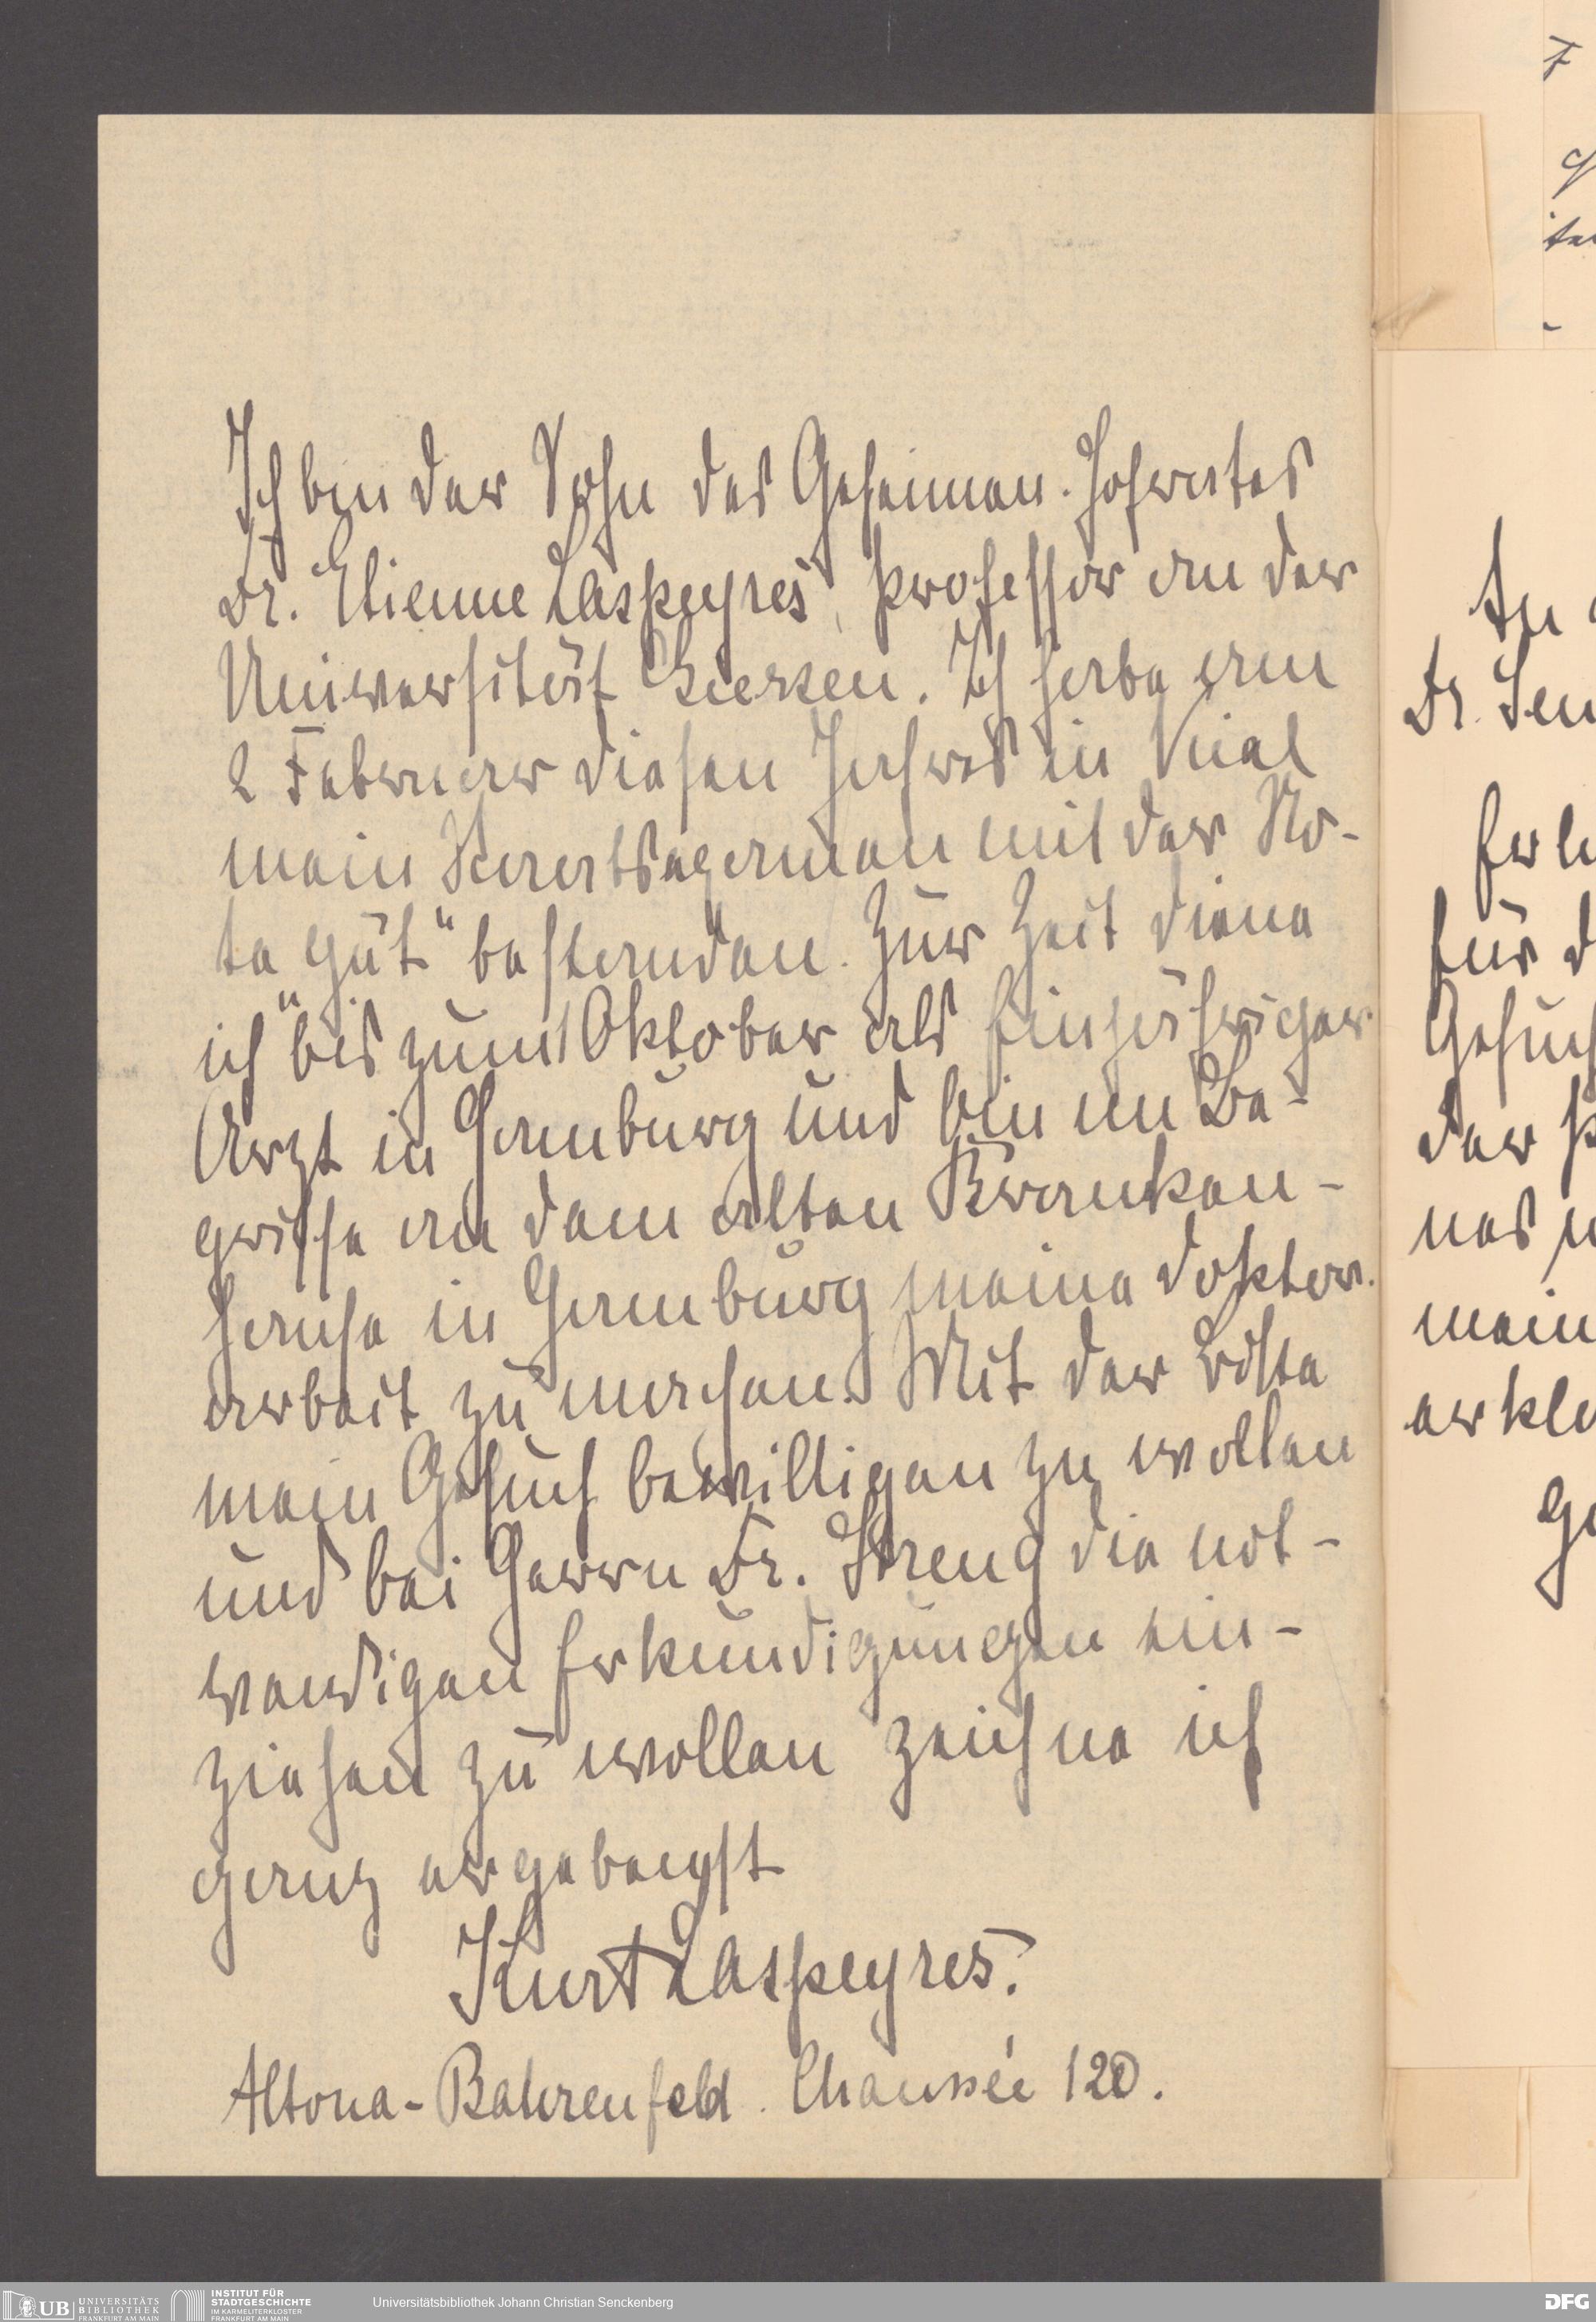 Ich bin der Sohn des Geheimen Hofrates
Dr. Etienne Laspeyres, Professor an der
Universität Giessen. Ich habe am
2 Februar diesen Jahres in Kiel
mein Staatsexamen mit der No-
te „gut“ bestanden. Zur Zeit diene
ich bis zum 1 Oktober als Einjähriger
Arzt in Hamburg und bin im Be-
griffe an dem alten Kranken-
hause in Hamburg meine Doktor-
arbeit zu machen. Mit der Bitte
mein Gesuch bewilligen zu wollen
und bei Herrn Dr. Streng die not-
wendigen Erkundigungen ein-
ziehen zu wollen zeichne ich
ganz ergebenst
Kurt Laspeyres.
Altona-Bahrenfeld. Chaussée 120.
An
Dr. Sen
Erl
für d
Gesuch
der
nes
mein
erklä
UB UNIVERSITÄTS
BIBLIOTHEK
FRANKFURT AM MAIN
INSTITUT FÜR
STADTGESCHICHTE
IM KARMELITERKLOSTER
FRANKFURT AM MAIN
Universitätsbibliothek Johann Christian Senckenberg
DFG